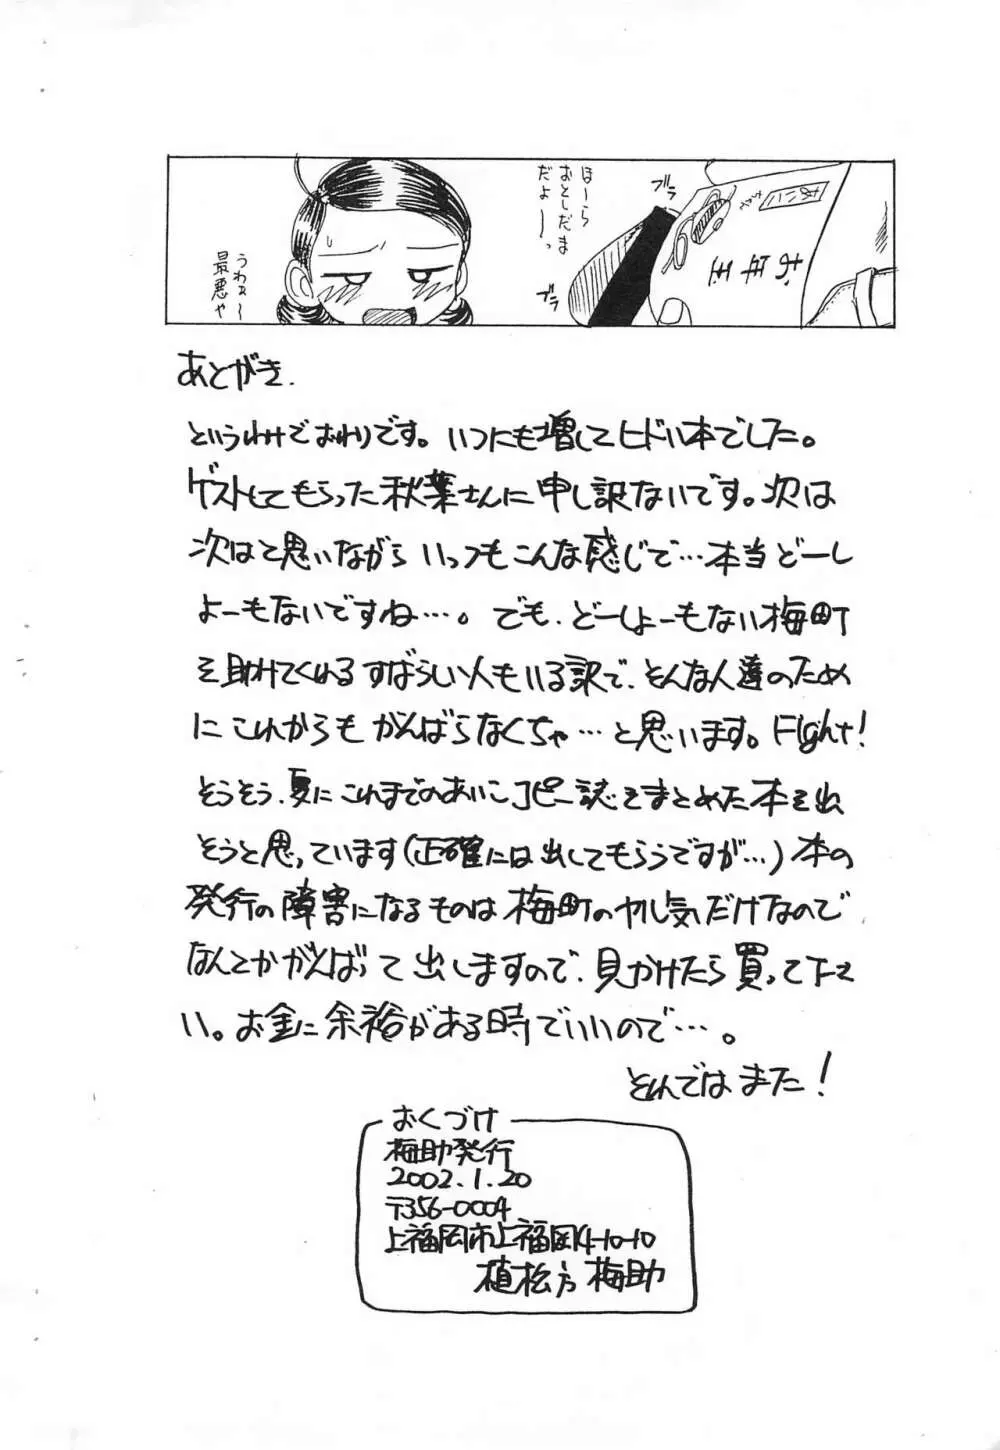 ほーら
おとしだま
だよーっ
ブラ
ブラ
うわぁ〜
最悪や
あとがき.
というわけでおわりです。いつにも増してヒドい本でした。
ゲストしてもらった秋葉さんに申し訳ないです。次は
次はと思いながらいっつもこんな感じで…本当どーし
よーもないですね…。でも、どーしよーもない梅町
を助けてくれるすばらしい人もいる訳で、そんな人達のため
にこれからもがんばらなくちゃ…と思います。Fight!
そうそう、夏にこれまでのあいこコピー誌をまとめた本を出
そうと思っています(正確には出してもらうですが…)本の
発行の障害になるものは梅町のヤル気だけなので
なんとかがんばって出しますので、見かけたら買って下さ
い。お金に余裕がある時でいいので…。
それではまた!
おくづけ
梅助発行
2002.1.20
〒356-0004
上福岡市上福岡4-10-10
植松方 梅助